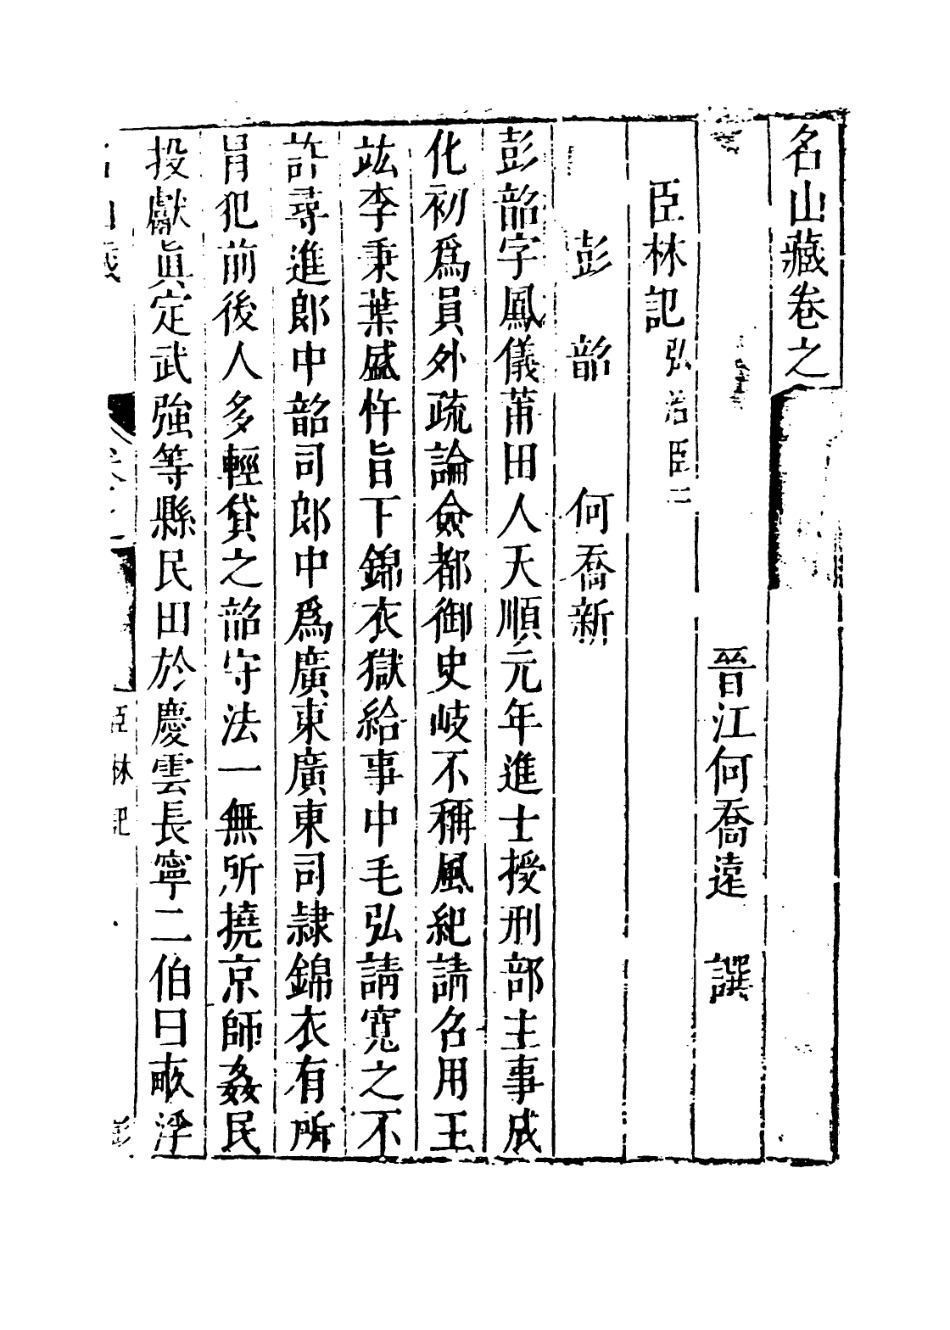 名山藏卷之
晉江何喬遠 譔
臣林記 弘治臣二
彭韶 何喬新
彭韶字鳳儀莆田人天順元年進士授刑部主事成
化初爲員外疏論僉都御史岐不稱風紀請名用王
竑李秉葉盛忤旨下錦衣獄給事中毛弘請寬之不
許尋進郎中韶司郎中爲廣東廣東司隸錦衣有所
肎犯前後人多輕貸之韶守法一無所撓京師姦民
投獻眞定武強等縣民田於慶雲長寧二伯曰畝浮
名山藏 臣林記 彭